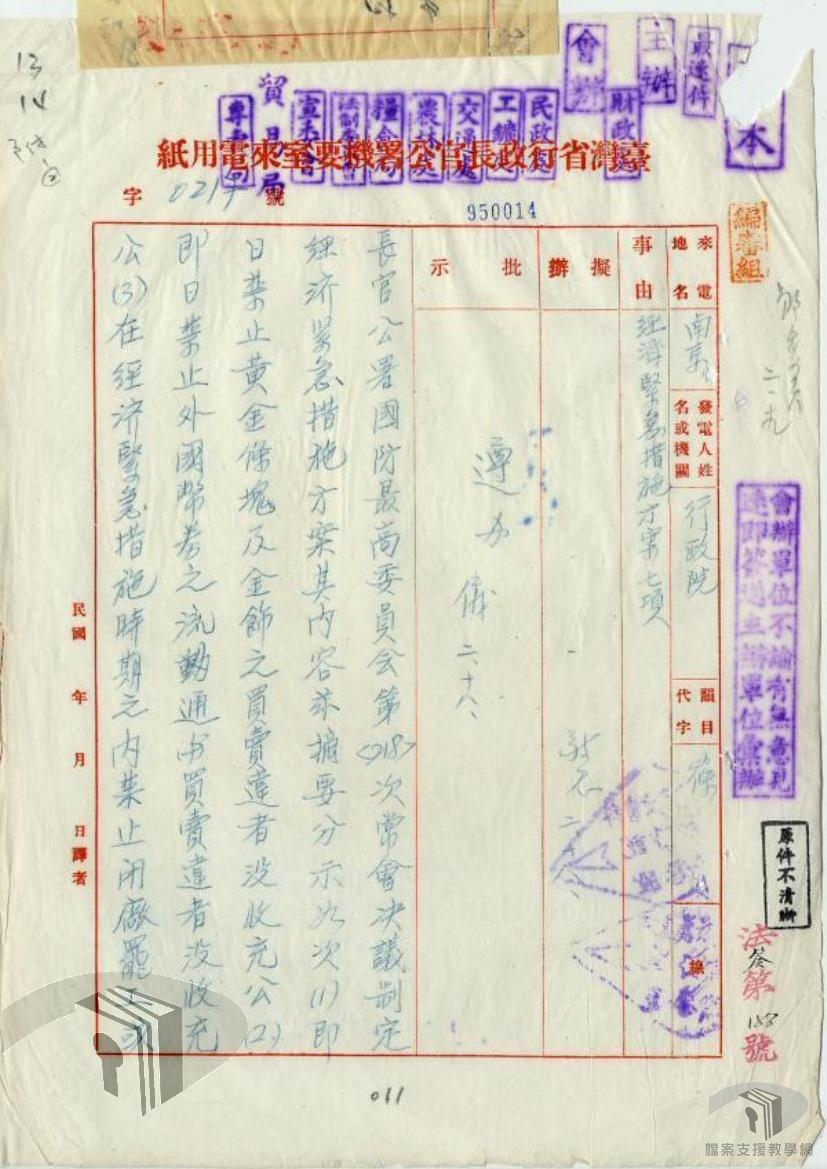 13
14
本
最速件
主辦
會辦
財政處
工礦處
民政處
交通處
農林處
糧食局
法制委員會
宣委會
貿易局
專賣局
臺灣省行政長官公署機要室來電用紙
字
號
950014
編審組
來電地名
南京
發電人姓名或機關
行政院
韻目代字
事由
經濟緊急措施方案七項
擬辦
批示
遵办
儀
二、十八、
長官公署國防最高委員会第<218>次常會決議制定
經济緊急措施方案其內容茲摘要分示如次(1)即
日禁止黃金條塊及金飾之買賣違者没收充公(2)
即日禁止外國幣券之流動通用買賣違者没收充
公(3)在經济緊急措施時期之內禁止閉廠罷工或
民國 年 月 日譯者
二、九
會辦單位不論有無意見
速即簽送主辦單位彙辦
原件不清晰
法簽第188號
011
檔案支援教學網